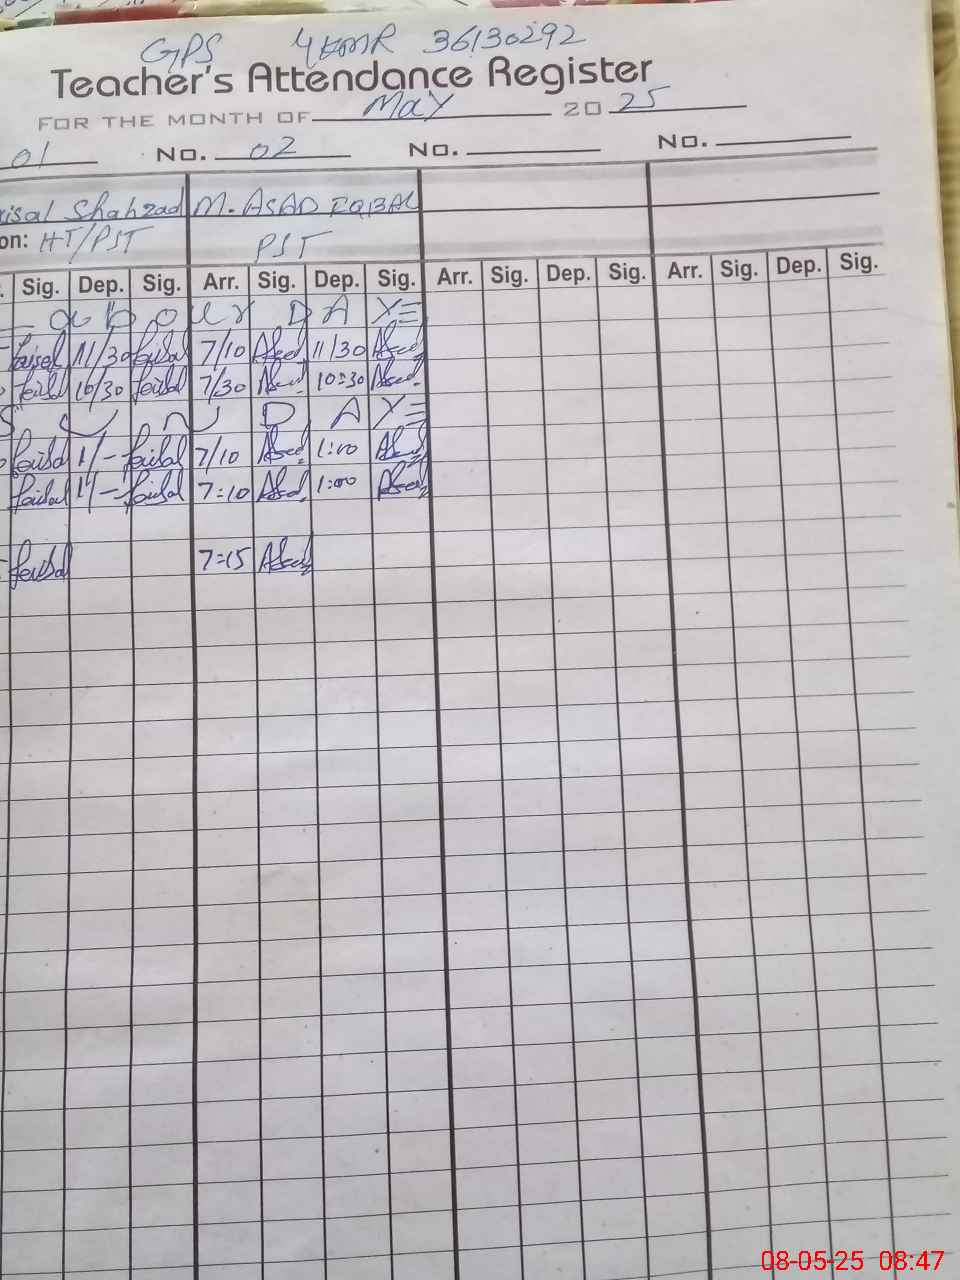 GPS 4KMR 36130292
Teacher's Attendance Register
FOR THE MONTH OF May 20 25
01 No. 02 No. No.
isal Shahzad M. ASAD IQBAL
on: HT/PST PST
Sig. Dep. Sig. Arr. Sig. Dep. Sig. Arr. Sig. Dep. Sig. Arr. Sig. Dep. Sig.
L a b o u r D A Y
Faisal 11/30 Faisal 7/10 Asad 11/30 Asad
Faisal 10/30 Faisal 7/30 Asad 10:30 Asad
S U N D A Y
Faisal 1/- Faisal 7/10 Asad 1:00 Asad
Faisal 1/- Faisal 7:10 Asad 1:00 Asad
Faisal 7:15 Asad
08-05-25 08:47